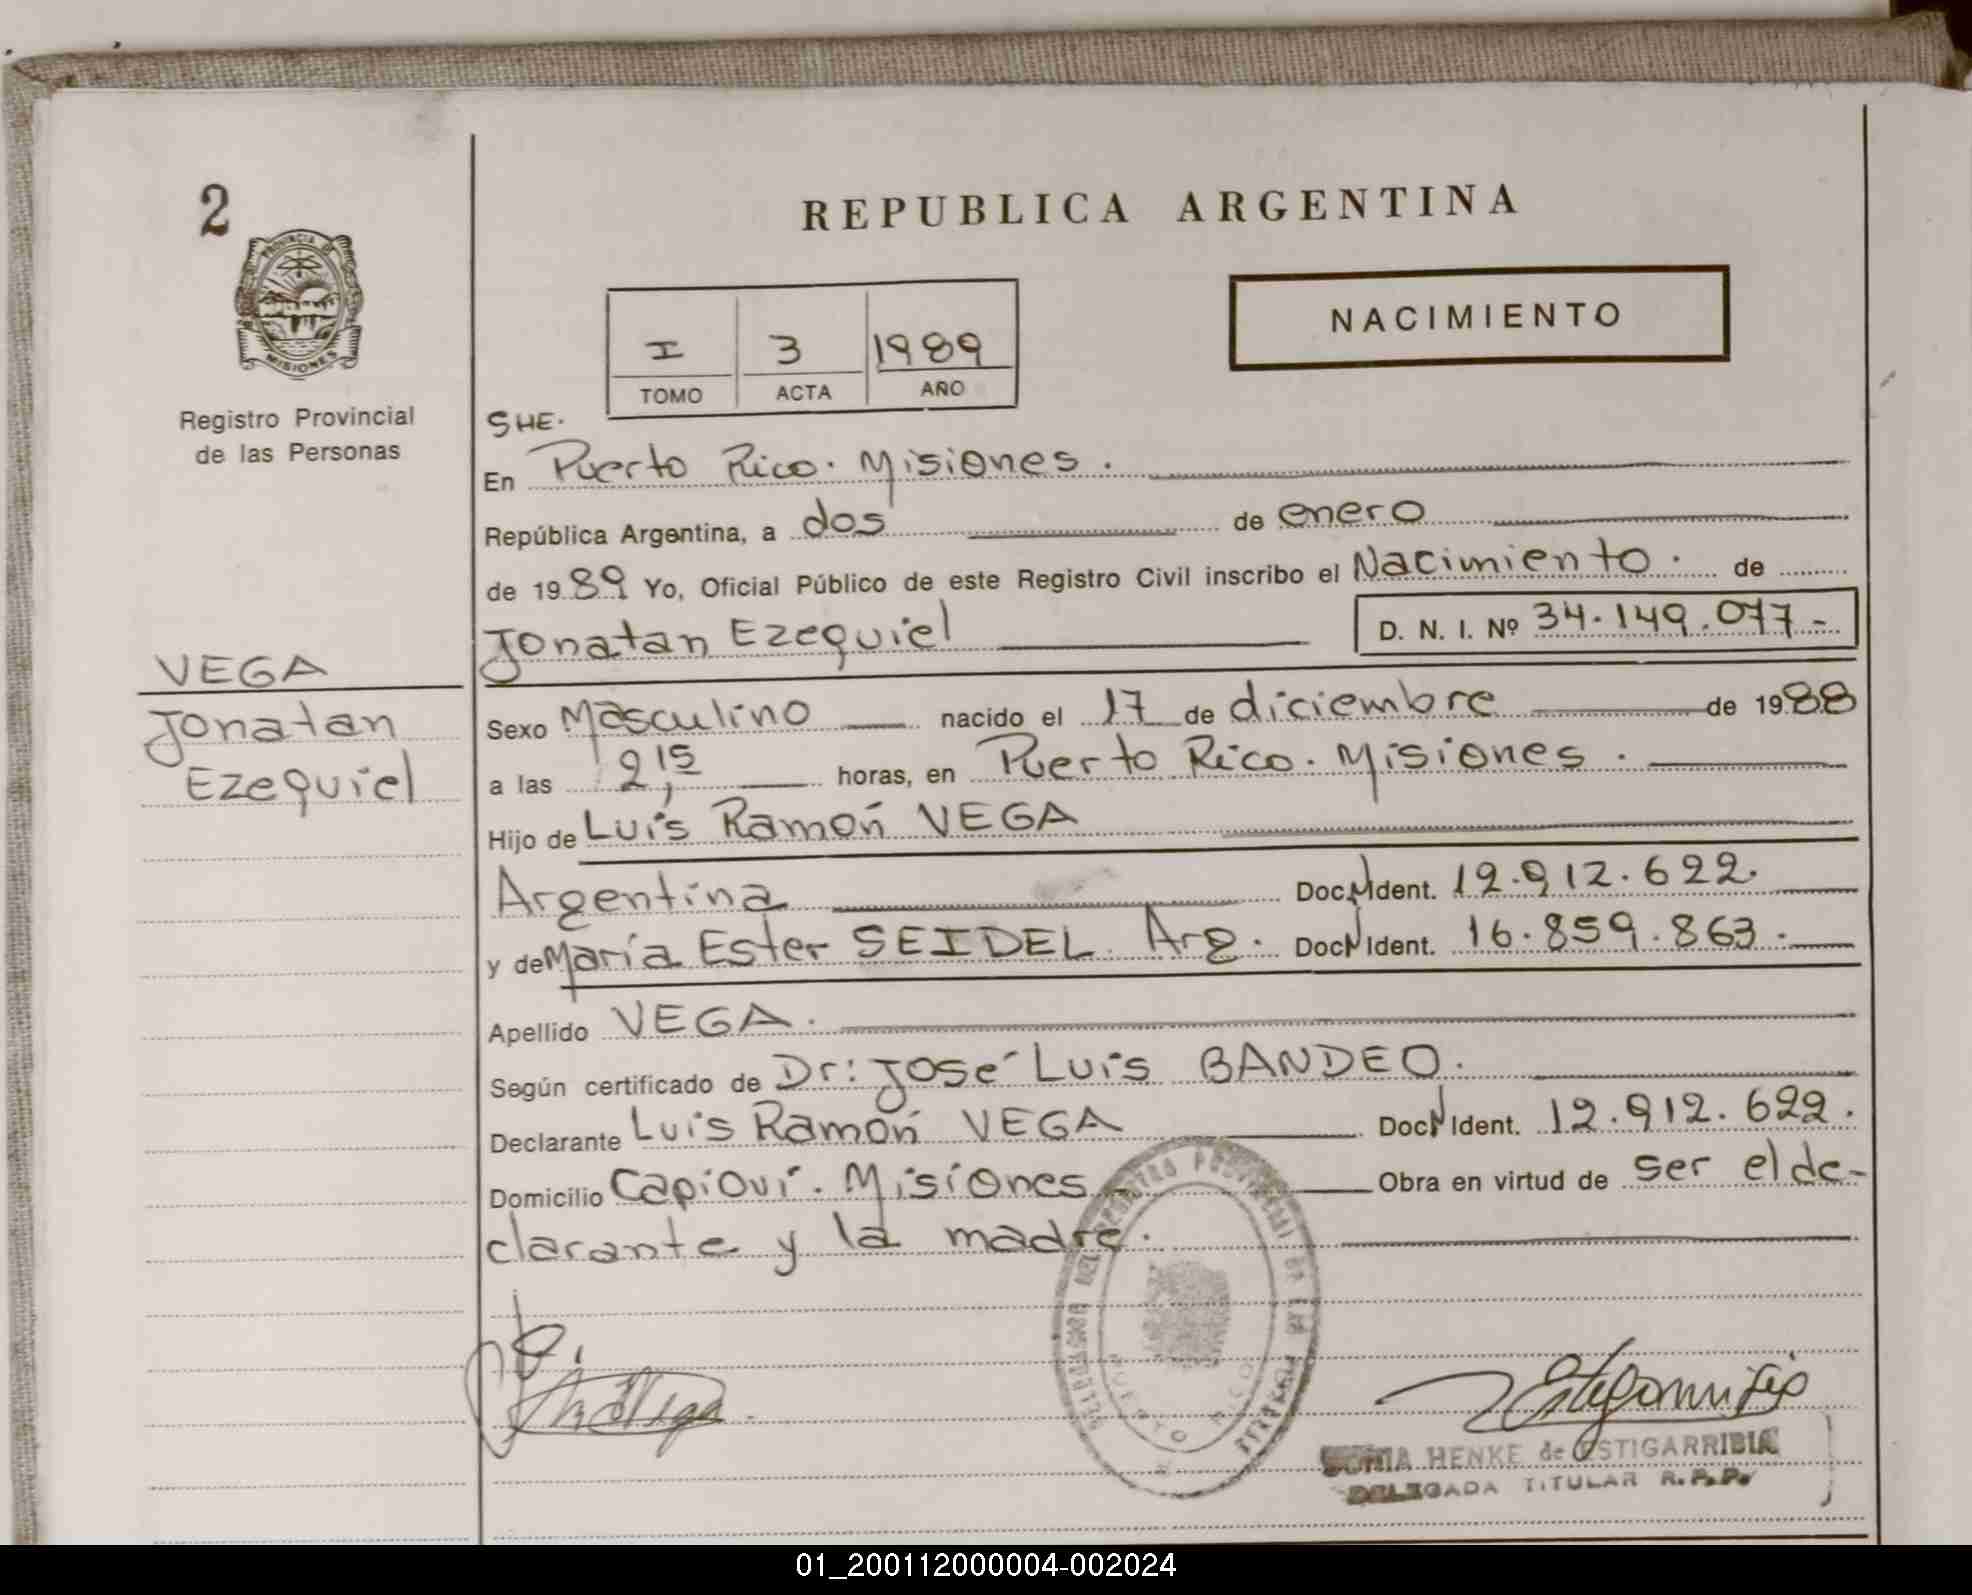 2
PROVINCIA DE
MISIONES
Registro Provincial
de las Personas
VEGA
Jonatan
Ezequiel
REPUBLICA ARGENTINA
I 3 1989
TOMO ACTA AÑO
NACIMIENTO
SHE.
En Puerto Rico. Misiones.
República Argentina, a dos de enero
de 1989 Yo, Oficial Público de este Registro Civil inscribo el Nacimiento. de
Jonatan Ezequiel D. N. I. Nº 34.149.077.-
Sexo Masculino nacido el 17 de diciembre de 1988
a las 2,15 horas, en Puerto Rico. Misiones.
Hijo de Luis Ramón VEGA
Argentina Doc. N Ident. 12.912.622.
y de María Ester SEIDEL Arg. Doc N Ident. 16.859.863.
Apellido VEGA.
Según certificado de Dr: José Luis BANDEO.
Declarante Luis Ramón VEGA Doc N Ident. 12.912.622.
Domicilio Capioví. Misiones Obra en virtud de ser el de-
clarante y la madre.
REGISTRO PROVINCIAL DE LAS PERSONAS
PUERTO RICO
SONIA HENKE de ESTIGARRIBIA
DELEGADA TITULAR R.P.P.
01_200112000004-002024